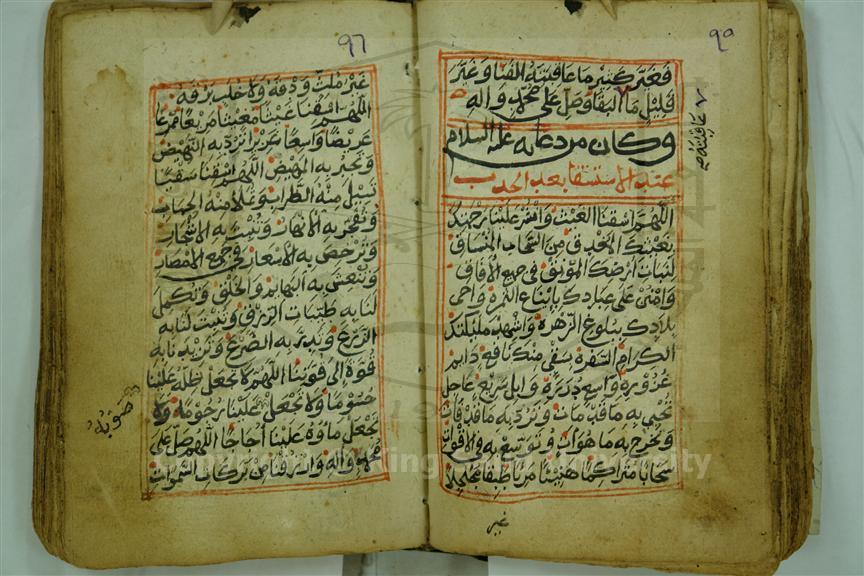 ٩٥
فغير كثير ما عاقبته الفنا وغير
قليل ما البقا وصل على محمد واله
عاقبته
وكان من دعائه عليه السلام
عند الاستسقا بعد الجدب
اللهم اسقنا الغيث وانشر علينا رحمتك
بغيثك المغدق من السحاب المنساق
لنبات ارضك المونق في جميع الافاق
وامنن على عبادك بايناع الثمرة واحي
بلادك ببلوغ الزهرة واشهد ملئكتك
الكرام السفرة بسقي منك نافع دايم
غزره واسع درره وابل سريع عاجل
تحيي به ما قد مات وترد به ما قد فات
وتخرج به ما هو ات وتوسع به في الاقوات
سحابا متراكما هنيئا مريا طبقا مجلجلا
غير
٩٦
غير ملث ودقه ولا خلب برقه
اللهم اسقنا غيثا مغيثا مريعا ممرعا
عريضا واسعا غزيرا ترد به النهيض
وتجبر به المهيض اللهم اسقنا سقيا
تسيل منه الظراب وتملا منه الجباب
وتفجر به الانهار وتنبت به الاشجار
وترخص به الاسعار في جميع الامصار
وتنعش به البهايم والخلق وتكمل
لنا به طيبات الرزق وتنبت لنا به
الزرع وتدر به الضرع وتزيدنا به
قوة الى قوتنا اللهم لا تجعل ظله علينا
حسوما ولا تجعل علينا رجوما ولا
صوبه
تجعل ماؤه علينا اجاجا اللهم صل على
محمد واله وارزقنا من بركات السموات